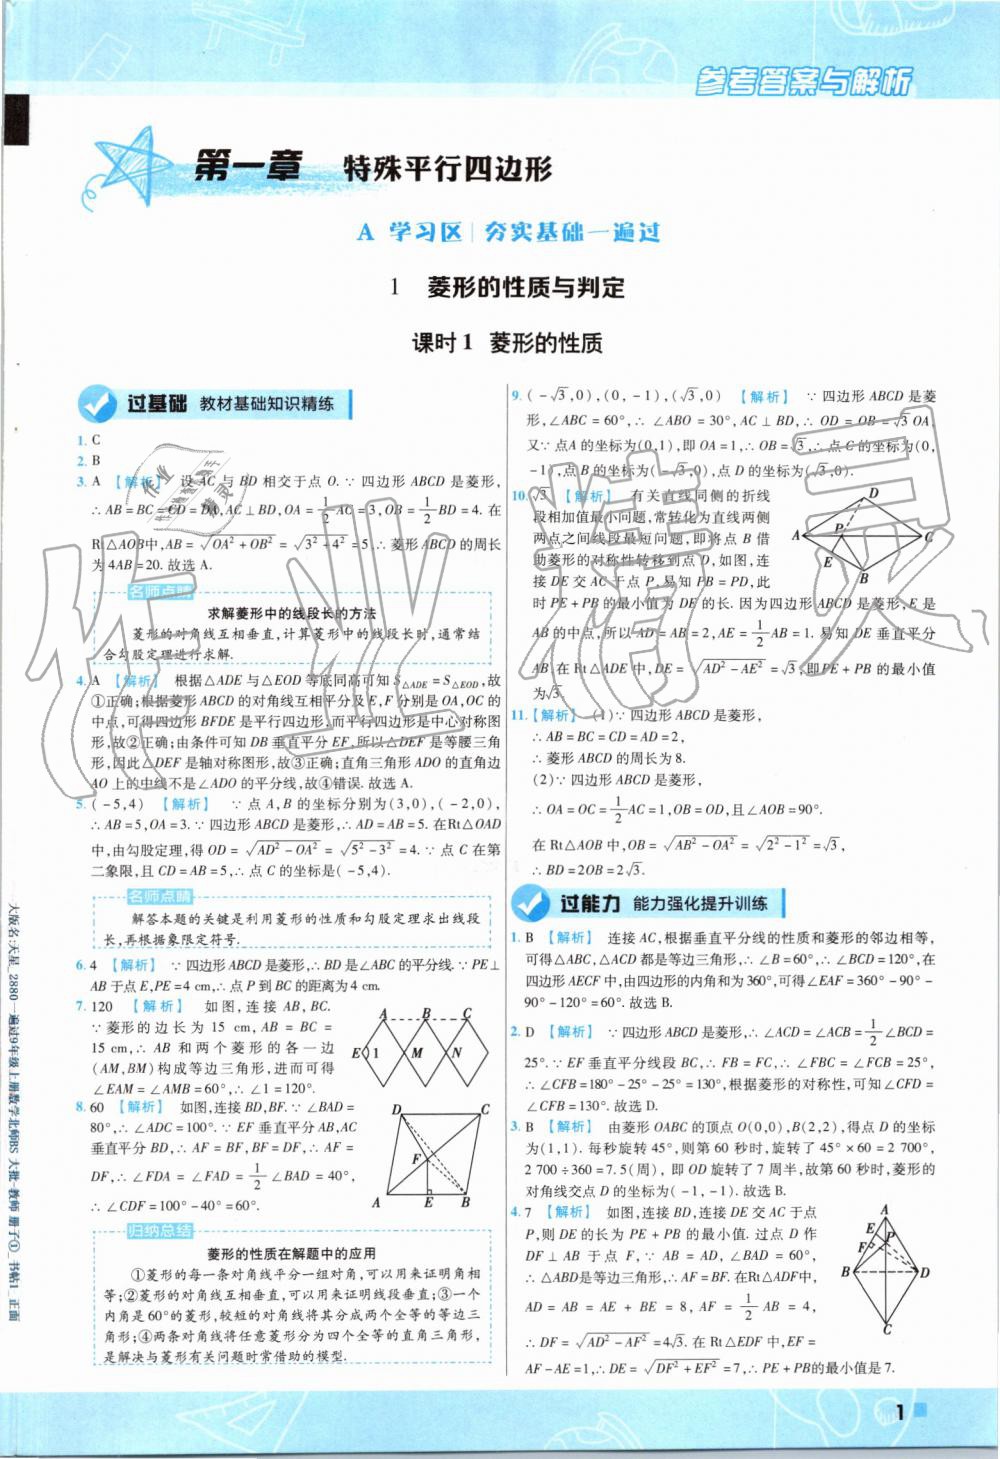 参考答案与解析
第一章 特殊平行四边形
A 学习区 | 夯实基础一遍过
1 菱形的性质与判定
课时1 菱形的性质
过基础 教材基础知识精练
1. C
2. B
3. A 【解析】 设 AC 与 BD 相交于点 O.∵ 四边形 ABCD 是菱形,
∴ AB = BC = CD = DA, AC ⊥ BD, OA = 1/2 AC = 3, OB = 1/2 BD = 4. 在
Rt△AOB中, AB = √(OA² + OB²) = √(3² + 4²) = 5,∴ 菱形 ABCD 的周长
为 4AB = 20. 故选 A.
名师点睛
求解菱形中的线段长的方法
菱形的对角线互相垂直,计算菱形中的线段长时,通常结
合勾股定理进行求解.
4. A 【解析】 根据△ADE 与△EOD 等底同高可知 S△ADE = S△EOD,故
①正确;根据菱形 ABCD 的对角线互相平分及 E,F 分别是 OA,OC 的
中点,可得四边形 BFDE 是平行四边形,而平行四边形是中心对称图
形,故②正确;由条件可知 DB 垂直平分 EF,所以△DEF 是等腰三角
形,因此△DEF 是轴对称图形,故③正确;直角三角形 ADO 的直角边
AO 上的中线不是∠ADO 的平分线,故④错误. 故选 A.
5. (-5,4) 【解析】 ∵ 点 A,B 的坐标分别为(3,0),(-2,0),
∴ AB = 5, OA = 3.∵ 四边形 ABCD 是菱形,∴ AD = AB = 5. 在Rt△OAD
中,由勾股定理,得 OD = √(AD² - OA²) = √(5² - 3²) = 4.∵ 点 C 在第
二象限,且 CD = AB = 5,∴ 点 C 的坐标是(-5,4).
名师点睛
解答本题的关键是利用菱形的性质和勾股定理求出线段
长,再根据象限定符号.
6. 4 【解析】 ∵ 四边形 ABCD 是菱形,∴ BD 是∠ABC 的平分线.∵ PE⊥
AB 于点 E, PE = 4 cm,∴ 点 P 到 BC 的距离为 4 cm.
7. 120 【解析】 如图,连接 AB, BC.
∵ 菱形的边长为 15 cm, AB = BC =
15 cm,∴ AB 和两个菱形的各一边
(AM,BM)构成等边三角形,进而可得
∠EAM = ∠AMB = 60°,∴ ∠1 = 120°.
A B C
E 1 M N
8. 60 【解析】 如图,连接 BD,BF.∵ ∠BAD =
80°,∴ ∠ADC = 100°.∵ EF 垂直平分 AB,AC
垂直平分 BD,∴ AF = BF, BF = DF,∴ AF =
DF,∴ ∠FDA = ∠FAD = 1/2 ∠BAD = 40°,
∴ ∠CDF = 100° - 40° = 60°.
D C
F
A E B
归纳总结
菱形的性质在解题中的应用
①菱形的每一条对角线平分一组对角,可以用来证明角相
等;②菱形的对角线互相垂直,可以用来证明线段垂直;③一个
内角是 60°的菱形,较短的对角线将其分成两个全等的等边三
角形;④两条对角线将任意菱形分为四个全等的直角三角形,
是解决与菱形有关问题时常借助的模型.
9. (-√3,0),(0,-1),(√3,0) 【解析】 ∵ 四边形 ABCD 是菱
形,∠ABC = 60°,∴ ∠ABO = 30°, AC ⊥ BD,∴ OD = OB = √3 OA,
又∵ 点A 的坐标为(0,1),即 OA = 1,∴ OB = √3,∴ 点 C 的坐标为(0,
-1),点 B 的坐标为(-√3,0),点 D 的坐标为(√3,0).
10. √3 【解析】 有关直线同侧的折线
段相加值最小问题,常转化为直线两侧
两点之间线段最短问题,即将点 B 借
助菱形的对称性转移到点 D,如图,连
接 DE 交 AC 于点 P,易知 PB = PD,此
时 PE + PB 的最小值为 DE 的长. 因为四边形 ABCD 是菱形,E 是
AB 的中点,所以 AD = AB = 2, AE = 1/2 AB = 1. 易知 DE 垂直平分
AB,在 Rt△ADE 中, DE = √(AD² - AE²) = √3,即 PE + PB 的最小值
为√3.
D
A P C
E
B
11. 【解析】 (1)∵ 四边形 ABCD 是菱形,
∴ AB = BC = CD = AD = 2,
∴ 菱形 ABCD 的周长为 8.
(2)∵ 四边形 ABCD 是菱形,
∴ OA = OC = 1/2 AC = 1, OB = OD, 且∠AOB = 90°.
在 Rt△AOB 中, OB = √(AB² - OA²) = √(2² - 1²) = √3,
∴ BD = 2OB = 2√3.
过能力 能力强化提升训练
1. B 【解析】 连接 AC,根据垂直平分线的性质和菱形的邻边相等,
可得△ABC,△ACD 都是等边三角形,∴ ∠B = 60°,∴ ∠BCD = 120°,在
四边形 AECF 中,由四边形的内角和为 360°,可得∠EAF = 360° - 90° -
90° - 120° = 60°. 故选 B.
2. D 【解析】 ∵ 四边形 ABCD 是菱形,∴ ∠ACD = ∠ACB = 1/2 ∠BCD =
25°.∵ EF 垂直平分线段 BC,∴ FB = FC,∴ ∠FBC = ∠FCB = 25°,
∴ ∠CFB = 180° - 25° - 25° = 130°,根据菱形的对称性,可知∠CFD =
∠CFB = 130°. 故选 D.
3. B 【解析】 由菱形 OABC 的顶点 O(0,0),B(2,2),得点 D 的坐标
为(1,1). 每秒旋转 45°,则第 60 秒时,旋转了 45° × 60 = 2 700°,
2 700 ÷ 360 = 7.5(周), 即 OD 旋转了 7 周半,故第 60 秒时,菱形的
对角线交点 D 的坐标为(-1,-1). 故选 B.
4. 7 【解析】 如图,连接 BD,连接 DE 交 AC 于点
P,则 DE 的长为 PE + PB 的最小值. 过点 D 作
DF ⊥ AB 于点 F,∵ AB = AD, ∠BAD = 60°,
∴ △ABD是等边三角形,∴ AF = BF. 在Rt△ADF中,
AD = AB = AE + BE = 8, AF = 1/2 AB = 4,
∴ DF = √(AD² - AF²) = 4√3. 在 Rt△EDF 中, EF =
AF - AE = 1,∴ DE = √(DF² + EF²) = 7,∴ PE + PB的最小值是 7.
A
E
P
F
B D
C
大版名:天星_2880一遍过9年级上册数学北师BS 大批-教师 册子①_书帖1_正面
1
作业精灵